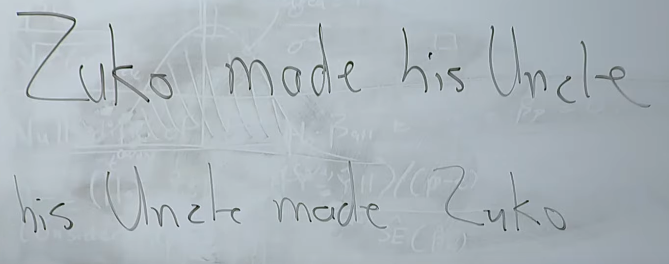 Zuko made his Uncle
his Uncle made Zuko